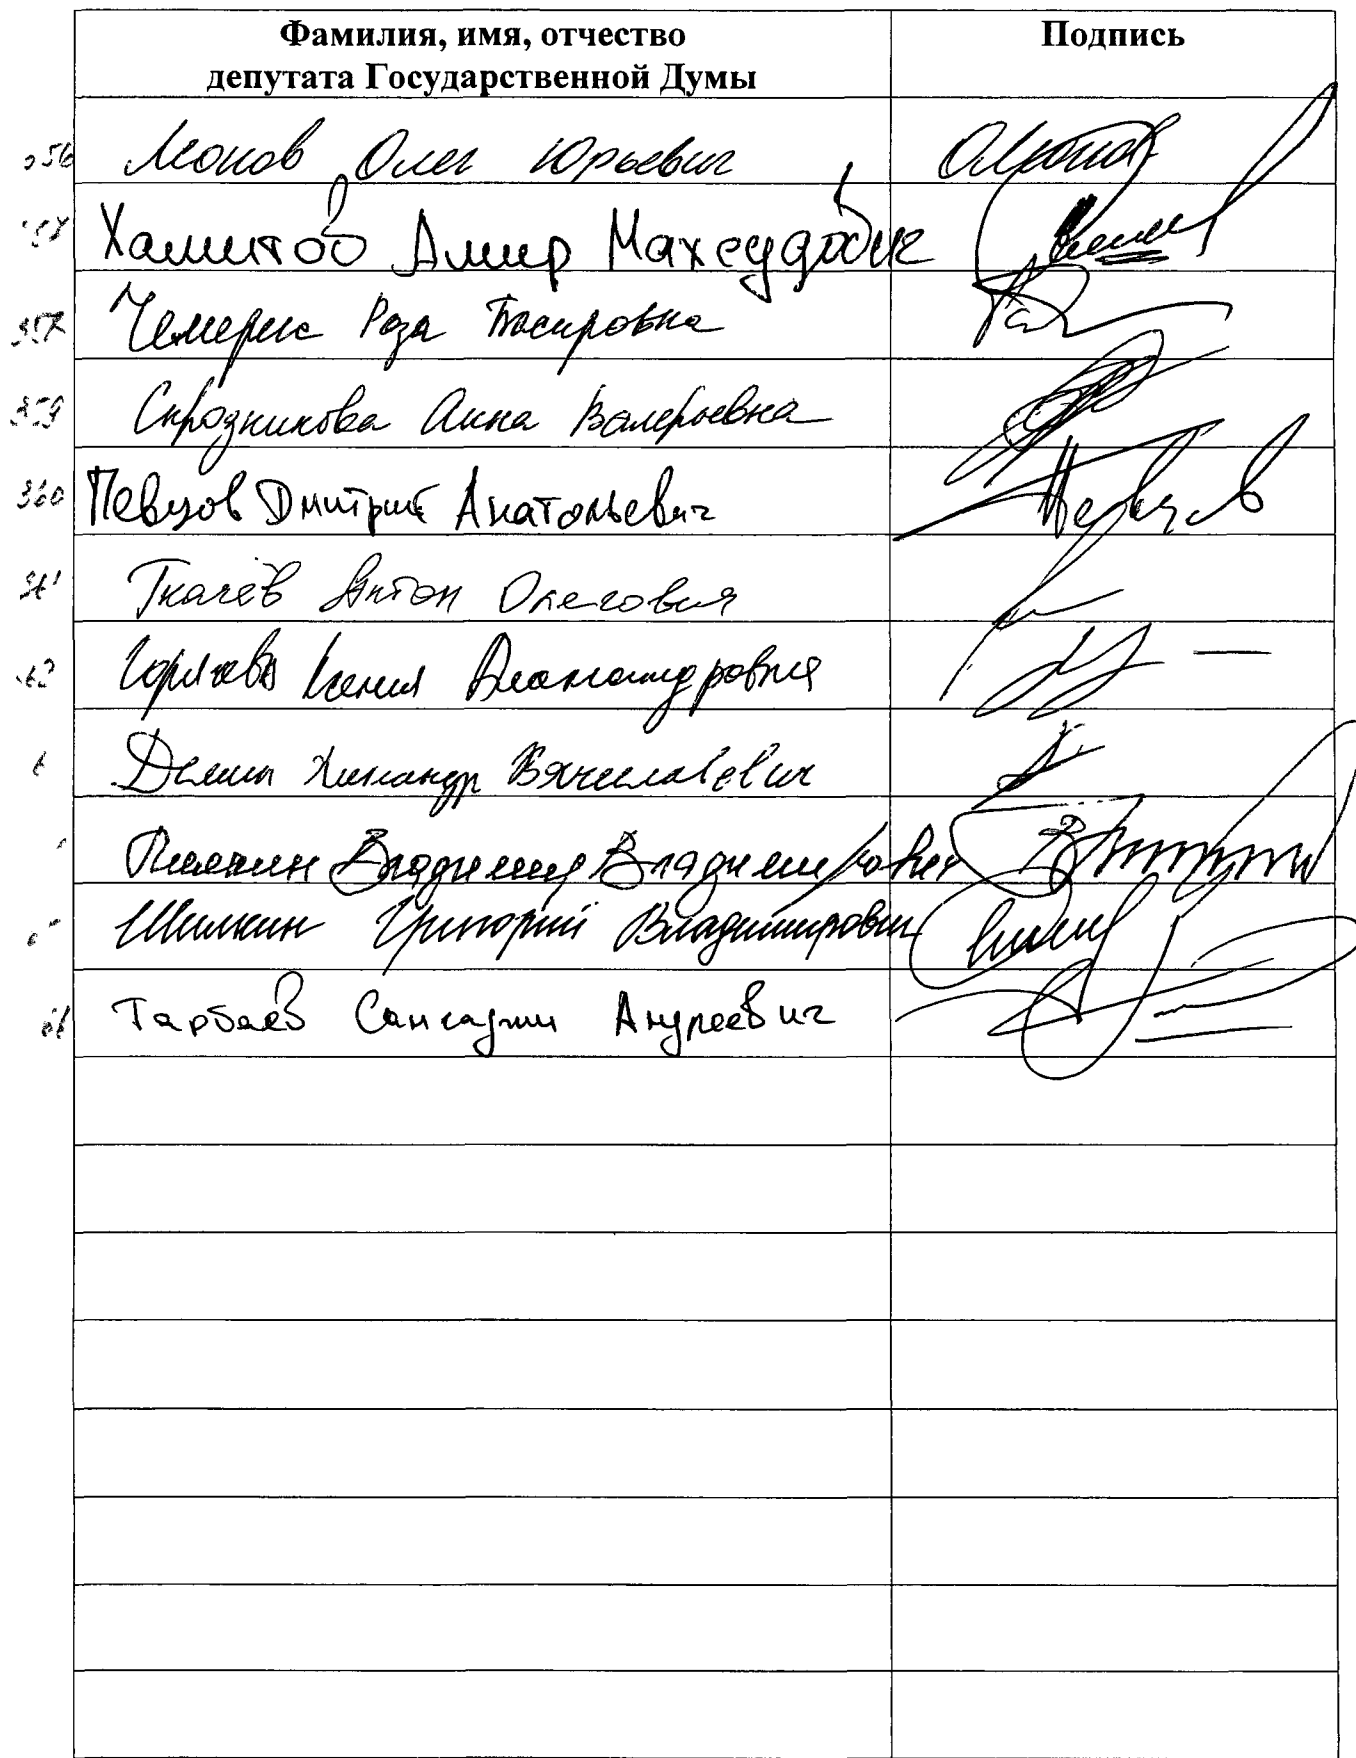 Фамилия, имя, отчество
депутата Государственной Думы
Подпись
Леонов Олег Юрьевич
Хамитов Амир Махсудович
Чемерис Роза Басировна
359 Скрозникова Анна Валерьевна
360 Певцов Дмитрий Анатольевич
Певцов
Ткачёв Антон Олегович
Горячева Ксения Александровна
Демин Александр Вячеславович
Плякин Владимир Владимирович
Шилкин Григорий Владимирович
Тарбаев Сангаджи Андреевич